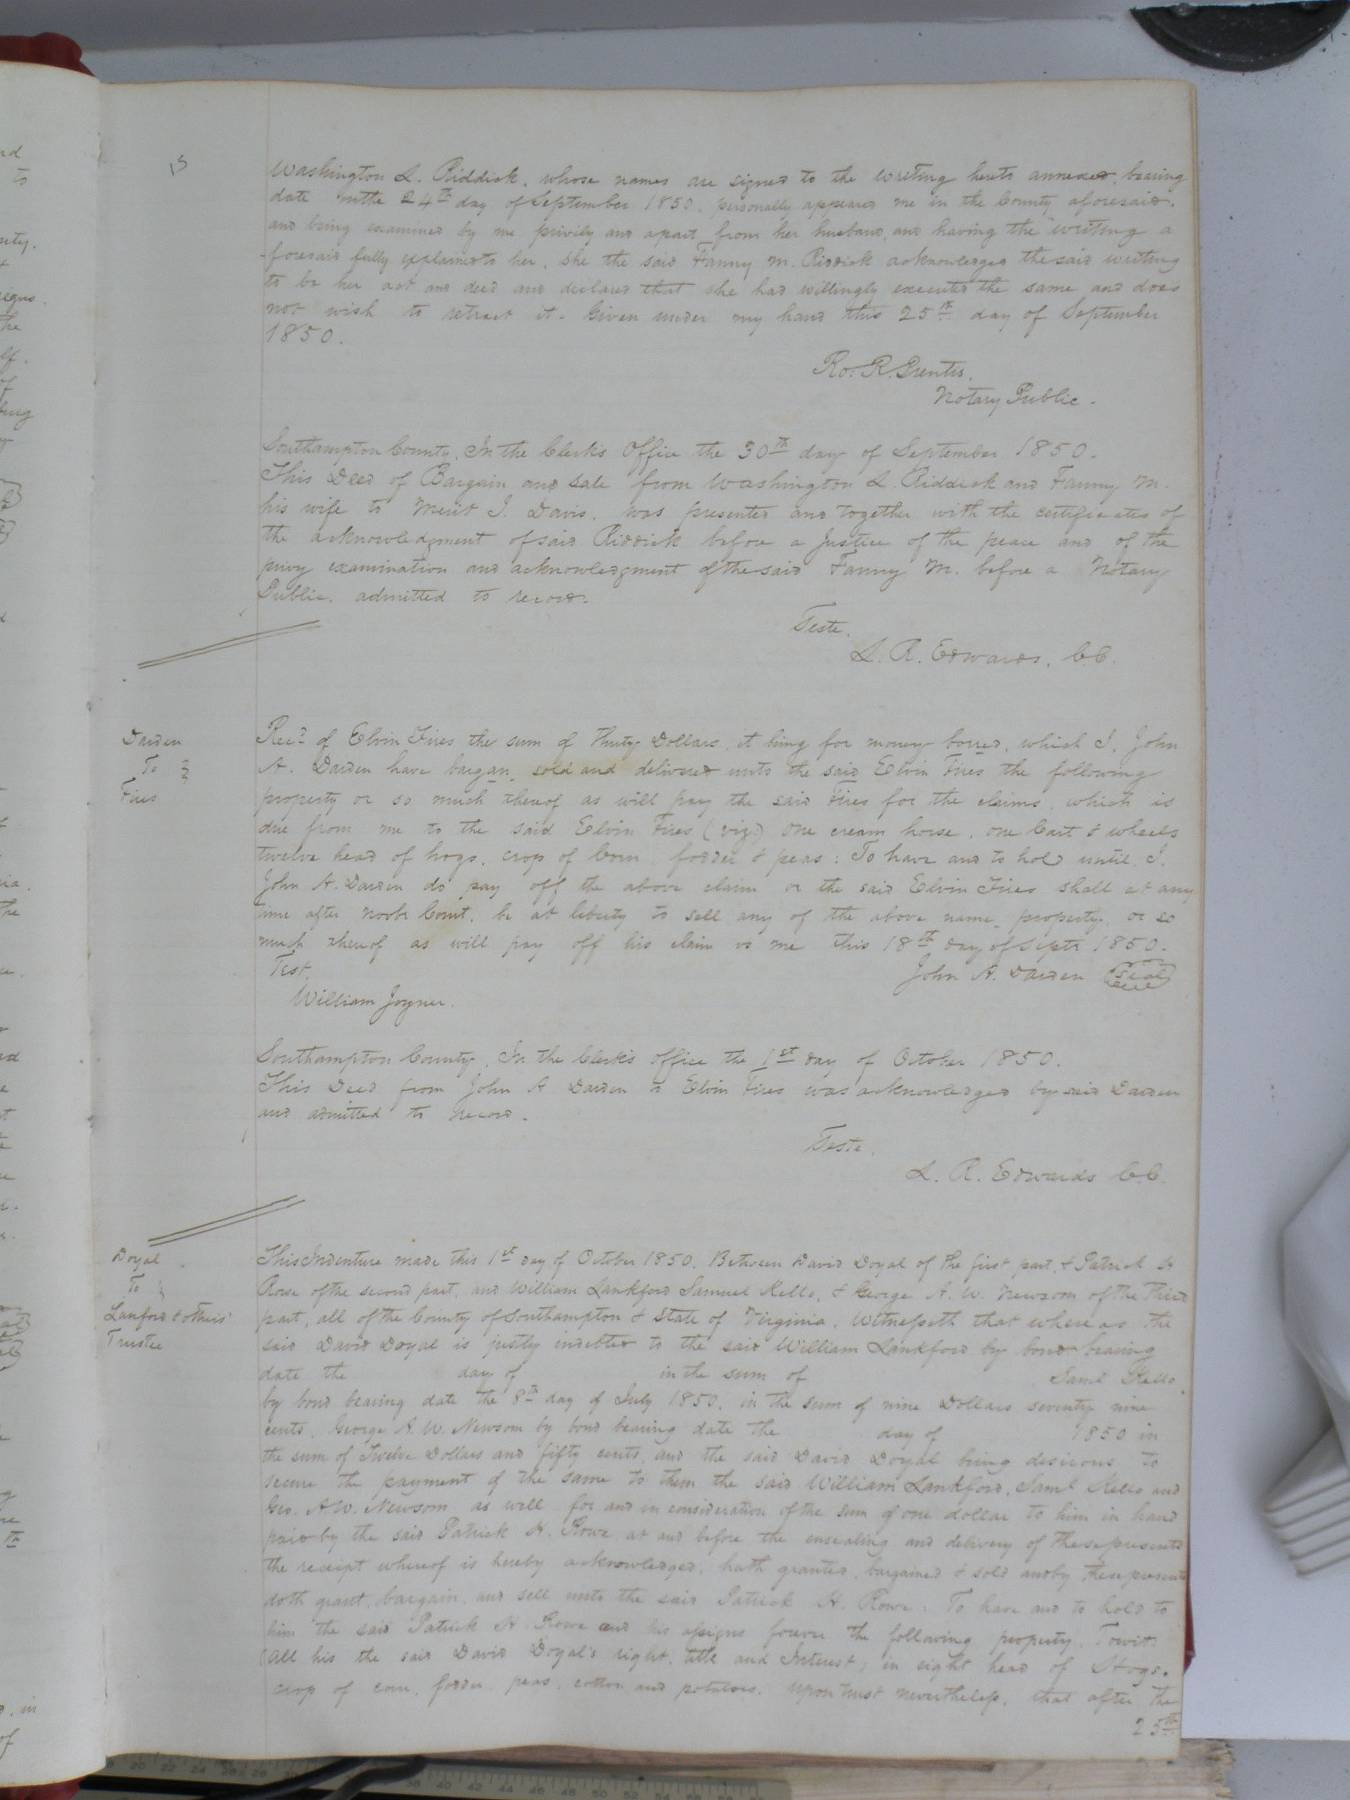 15
Washington L. Riddick, whose names are signed to the writing hereto annexed, bearing
date on the 24th day of September 1850, personally appeared me in the County aforesaid,
and being examined by me privily and apart from her husband, and having the writing a
-foresaid fully explained to her, she the said Fanny M. Riddick acknowledged the said writing
to be her act and deed and declared that she had willingly executed the same and does
not wish to retract it. Given under my hand this 25th day of September
1850.
Ro. R. Prentis.
Notary Public.
Southampton County, In the Clerk's Office the 30th day of September 1850.
This Deed of Bargain and Sale from Washington L Riddick and Fanny M.
his wife to J. Davis, was presented and together with the certificates of
the acknowledgment of said Riddick before a Justice of the peace and of the
privy examination and acknowledgment of the said Fanny M. before a Notary
Public, admitted to record.
Teste,
L. R. Edwards, C.C.
Darden
To
Fires
Recd of Elvin Fires the sum of Thirty Dollars, it being for money borred, which I, John
A. Darden have bargan, sold and delivered unto the said Elvin Fires the following
property or so much thereof as will pay the said Fires for the claims, which is
due from me to the said Elvin Fires (viz) One cream horse, one Cart & wheels
twelve head of hogs, crop of Corn, fodder & peas: To have and to hold until, I,
John A. Darden do pay off the above claim or the said Elvin Fires shall at any
time after Novbr Court, be at liberty to sell any of the above name property, or so
much thereof as will pay off his claim vs me this 18th day of Septr 1850.
Test,
John A. Darden Seal
William Joyner.
Southampton County, In the Clerk's office the 1st day of October 1850.
This Deed from John A Darden to Elvin Fires was acknowledged by said Darden
and admitted to record.
Teste,
L. R. Edwards C.C.
Doyal
To
Lanford & others'
Trustee
This Indenture made this 1st day of October 1850, Between David Doyal of the first part, & Patrick H
Rowe of the second part, and William Lankford Samuel Kello, & George A. W. Newsom of the third
part, all of the County of Southampton & State of Virginia, Witnesseth that where as the
said David Doyal is justly indebted to the said William Lankford by bond bearing
date the day of in the sum of Saml Kello,
by bond bearing date the 8th day of July 1850, in the sum of nine Dollars seventy nine
cents, George A. W. Newsom by bond bearing date the day of 1850 in
the sum of Twelve Dollars and fifty cents, and the said David Doyal being desirous to
secure the payment of the same to them the said William Lankford, Saml Kello and
Geo. A W. Newsom as well for and in consideration of the sum of one dollar to him in hand
paid by the said Patrick H. Rowe at and before the ensealing and delivery of these presents
the receipt whereof is hereby acknowledged, hath granted, bargained & sold and by these presents
doth grant, bargain, and sell unto the said Patrick H. Rowe: To have and to hold to
him the said Patrick H. Rowe and his assigns forever the following property. Towit:
(All his the said David Doyal's right, title and Interest, in eight head of Hogs.
crop of corn, fodder, peas, cotton and potatoes. Upon trust nevertheless, that after the
25th